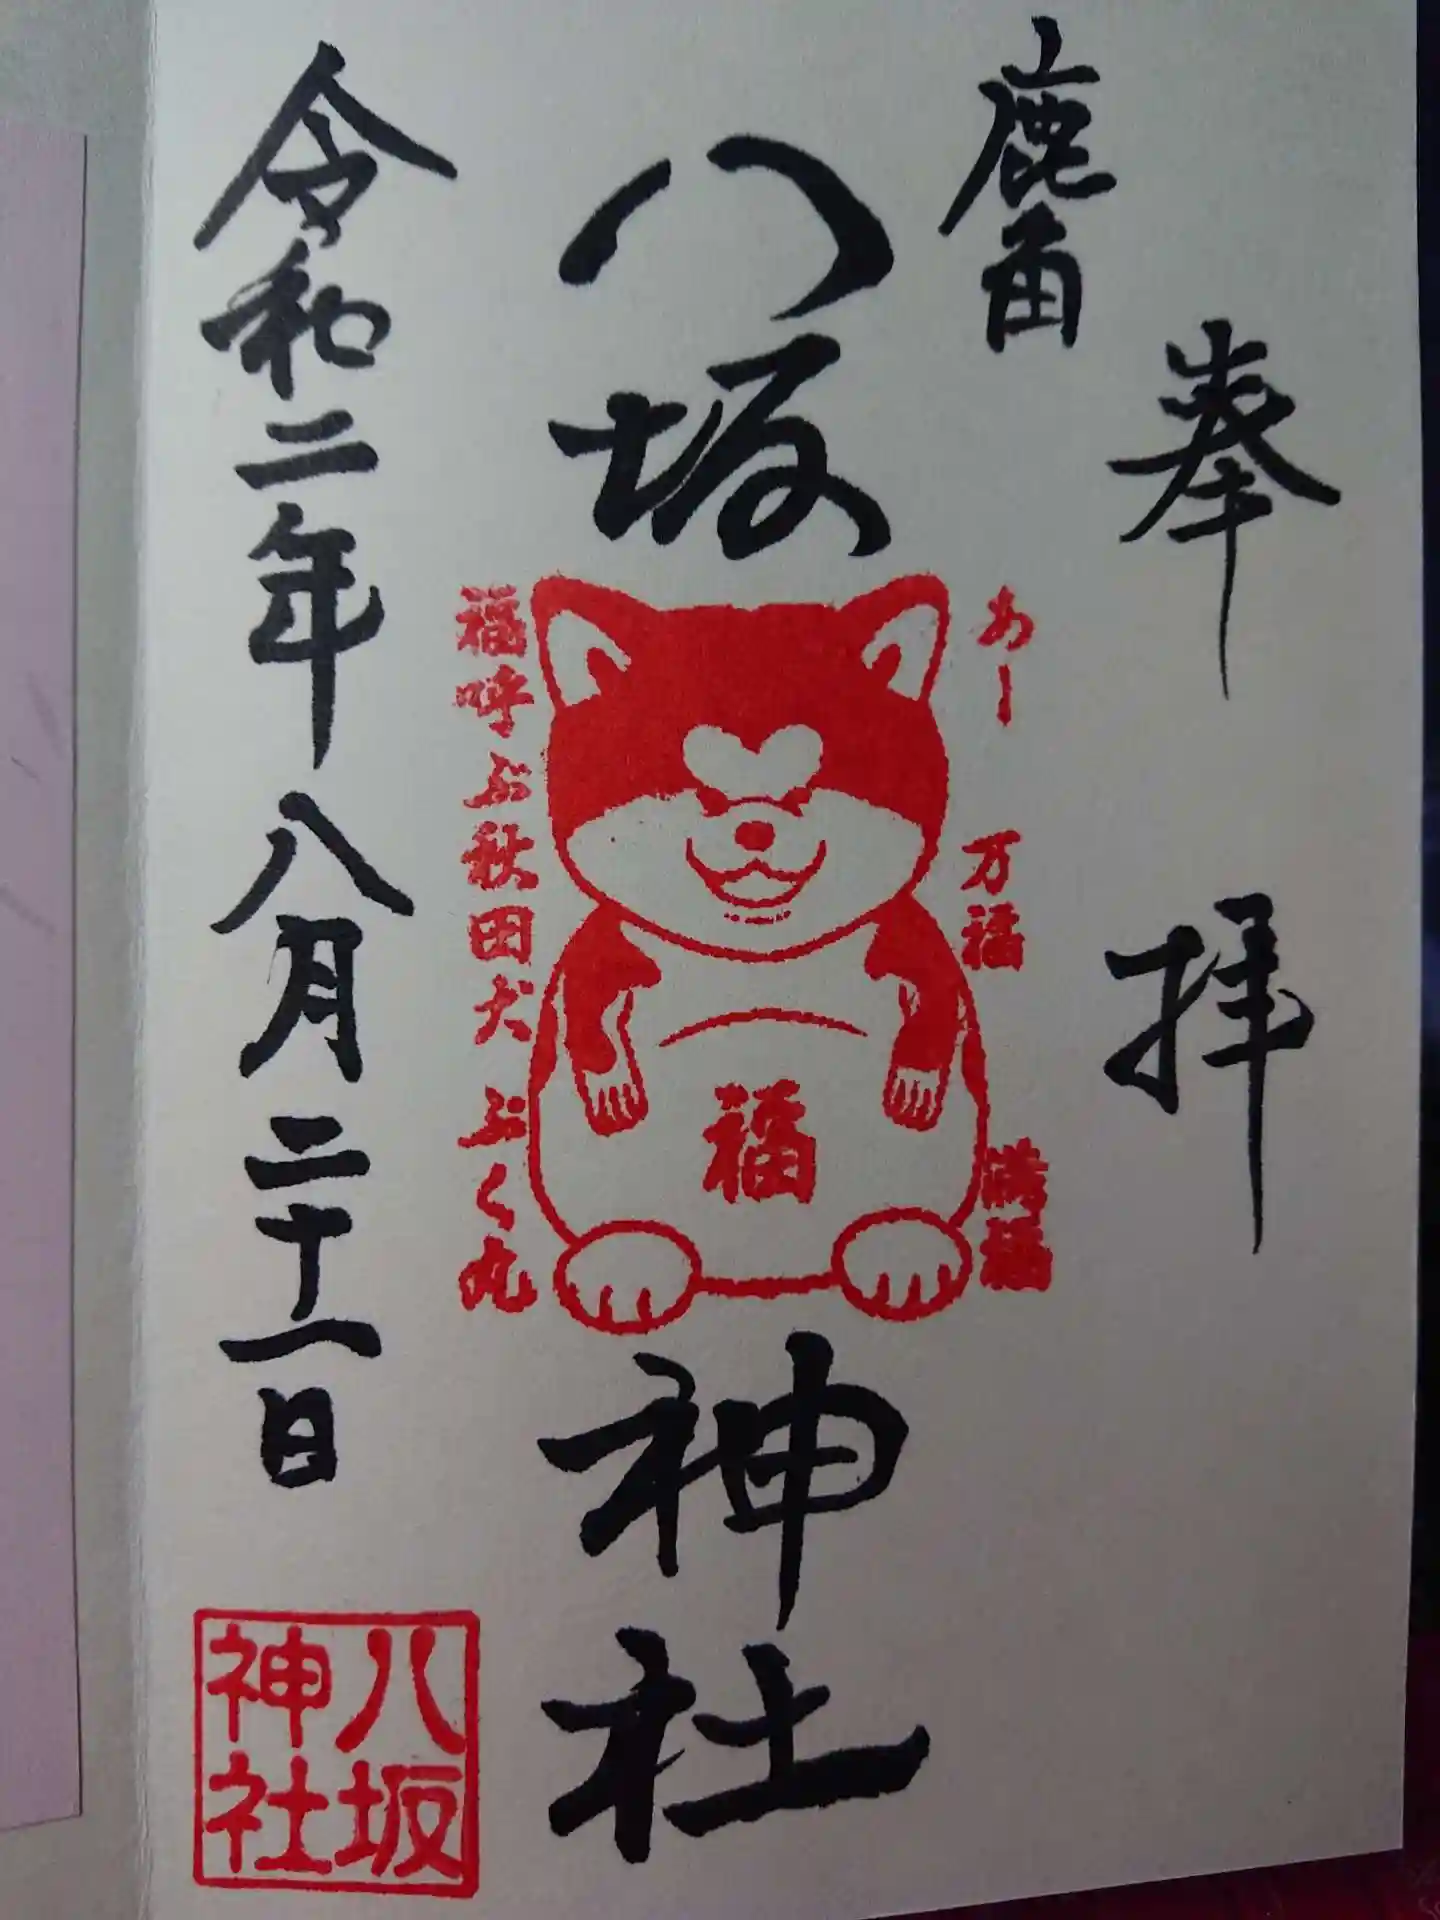 奉拝
鹿角
八坂神社
あー 万福 満福
福
福呼ぶ秋田犬 ぶく丸
令和二年八月二十一日
八坂
神社